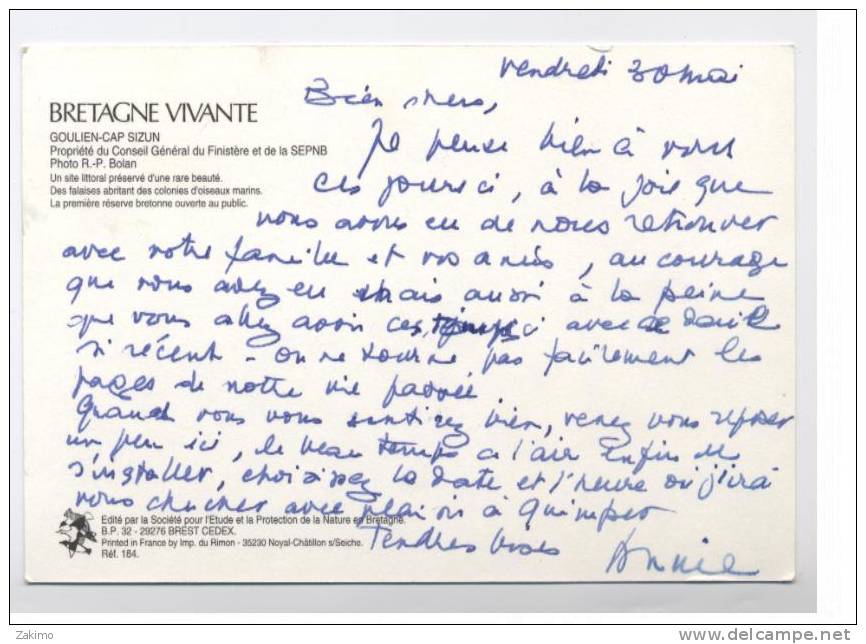 vendredi 30 mai
Bien chers,
BRETAGNE VIVANTE
GOULIEN-CAP SIZUN
Propriété du Conseil Général du Finistère et de la SEPNB
Photo R.-P. Bolan
Un site littoral préservé d'une rare beauté.
Des falaises abritant des colonies d'oiseaux marins.
La première réserve bretonne ouverte au public.
Je pense bien à vous
ces jours ci, à la joie que
nous avons eu de nous retrouver
avec votre famille et vos amis, au courage
que vous avez eu mais aussi à la peine
que vous allez avoir ces ci avec ce deuil
si récent - on ne tourne pas facilement les
pages de notre vie passée.
Quand vous vous sentirez bien, venez vous reposer
un peu ici, le beau temps a l'air enfin de
s'installer, choisissez la date et l'heure où j'irai
vous chercher avec plaisir à Quimper
Tendres bises
Annie
Edité par la Société pour l'Etude et la Protection de la Nature en Bretagne.
B.P. 32 - 29276 BREST CEDEX.
Printed in France by Imp. du Rimon - 35230 Noyal-Châtillon s/Seiche.
Réf. 184.
Zakimo
www.delcampe.net